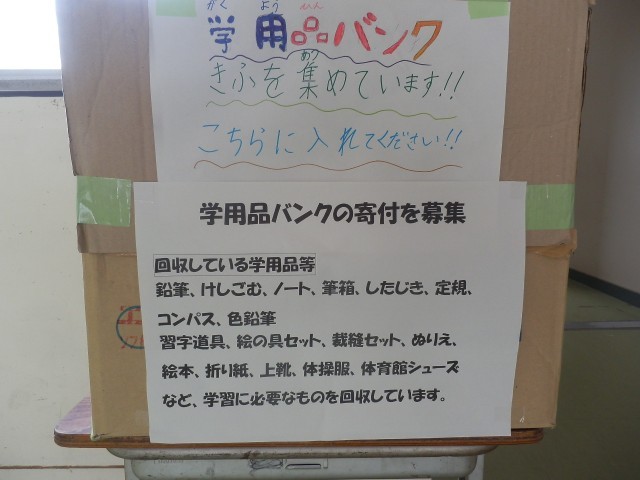 がく よう ひん
学用品バンク
あつ
きふを集めています!!
こちらに入れてください!!
学用品バンクの寄付を募集
回収している学用品等
鉛筆、けしごむ、ノート、筆箱、したじき、定規、
コンパス、色鉛筆
習字道具、絵の具セット、裁縫セット、ぬりえ、
絵本、折り紙、上靴、体操服、体育館シューズ
など、学習に必要なものを回収しています。